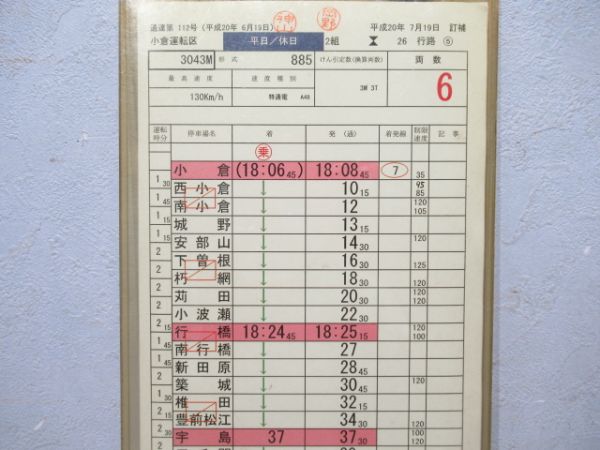 運達第 112号 (平成20年 6月19日) 平成20年 7月19日 訂補
小倉運転区 平日/休日 2組 26 行路 ⑤
3043M 形式 885 けん引定数(換算両数) 両数
最高速度 速度種別 3M 3T 6
130Km/h 特通電 A48
運転時分 停車場名 着 発(通) 着発線 制限速度 記事
乗
小倉 (18:06 45) 18:08 45 7 35
1 30 西小倉 ↓ 10 15 95 85
1 45 南小倉 ↓ 12 120 105
1 15 城野 ↓ 13 15
1 15 安部山 ↓ 14 30 120
2 下曽根 ↓ 16 30 125
2 朽網 ↓ 18 30 120
2 苅田 ↓ 20 30 120
2 小波瀬 ↓ 22 30
2 15 行橋 18:24 45 18:25 15 120 100
1 45 南行橋 ↓ 27
1 45 新田原 ↓ 28 45
2 築城 ↓ 30 45 120
1 30 椎田 ↓ 32 15
2 15 豊前松江 ↓ 34 30 120
2 30 宇島 37 37 30 100 120